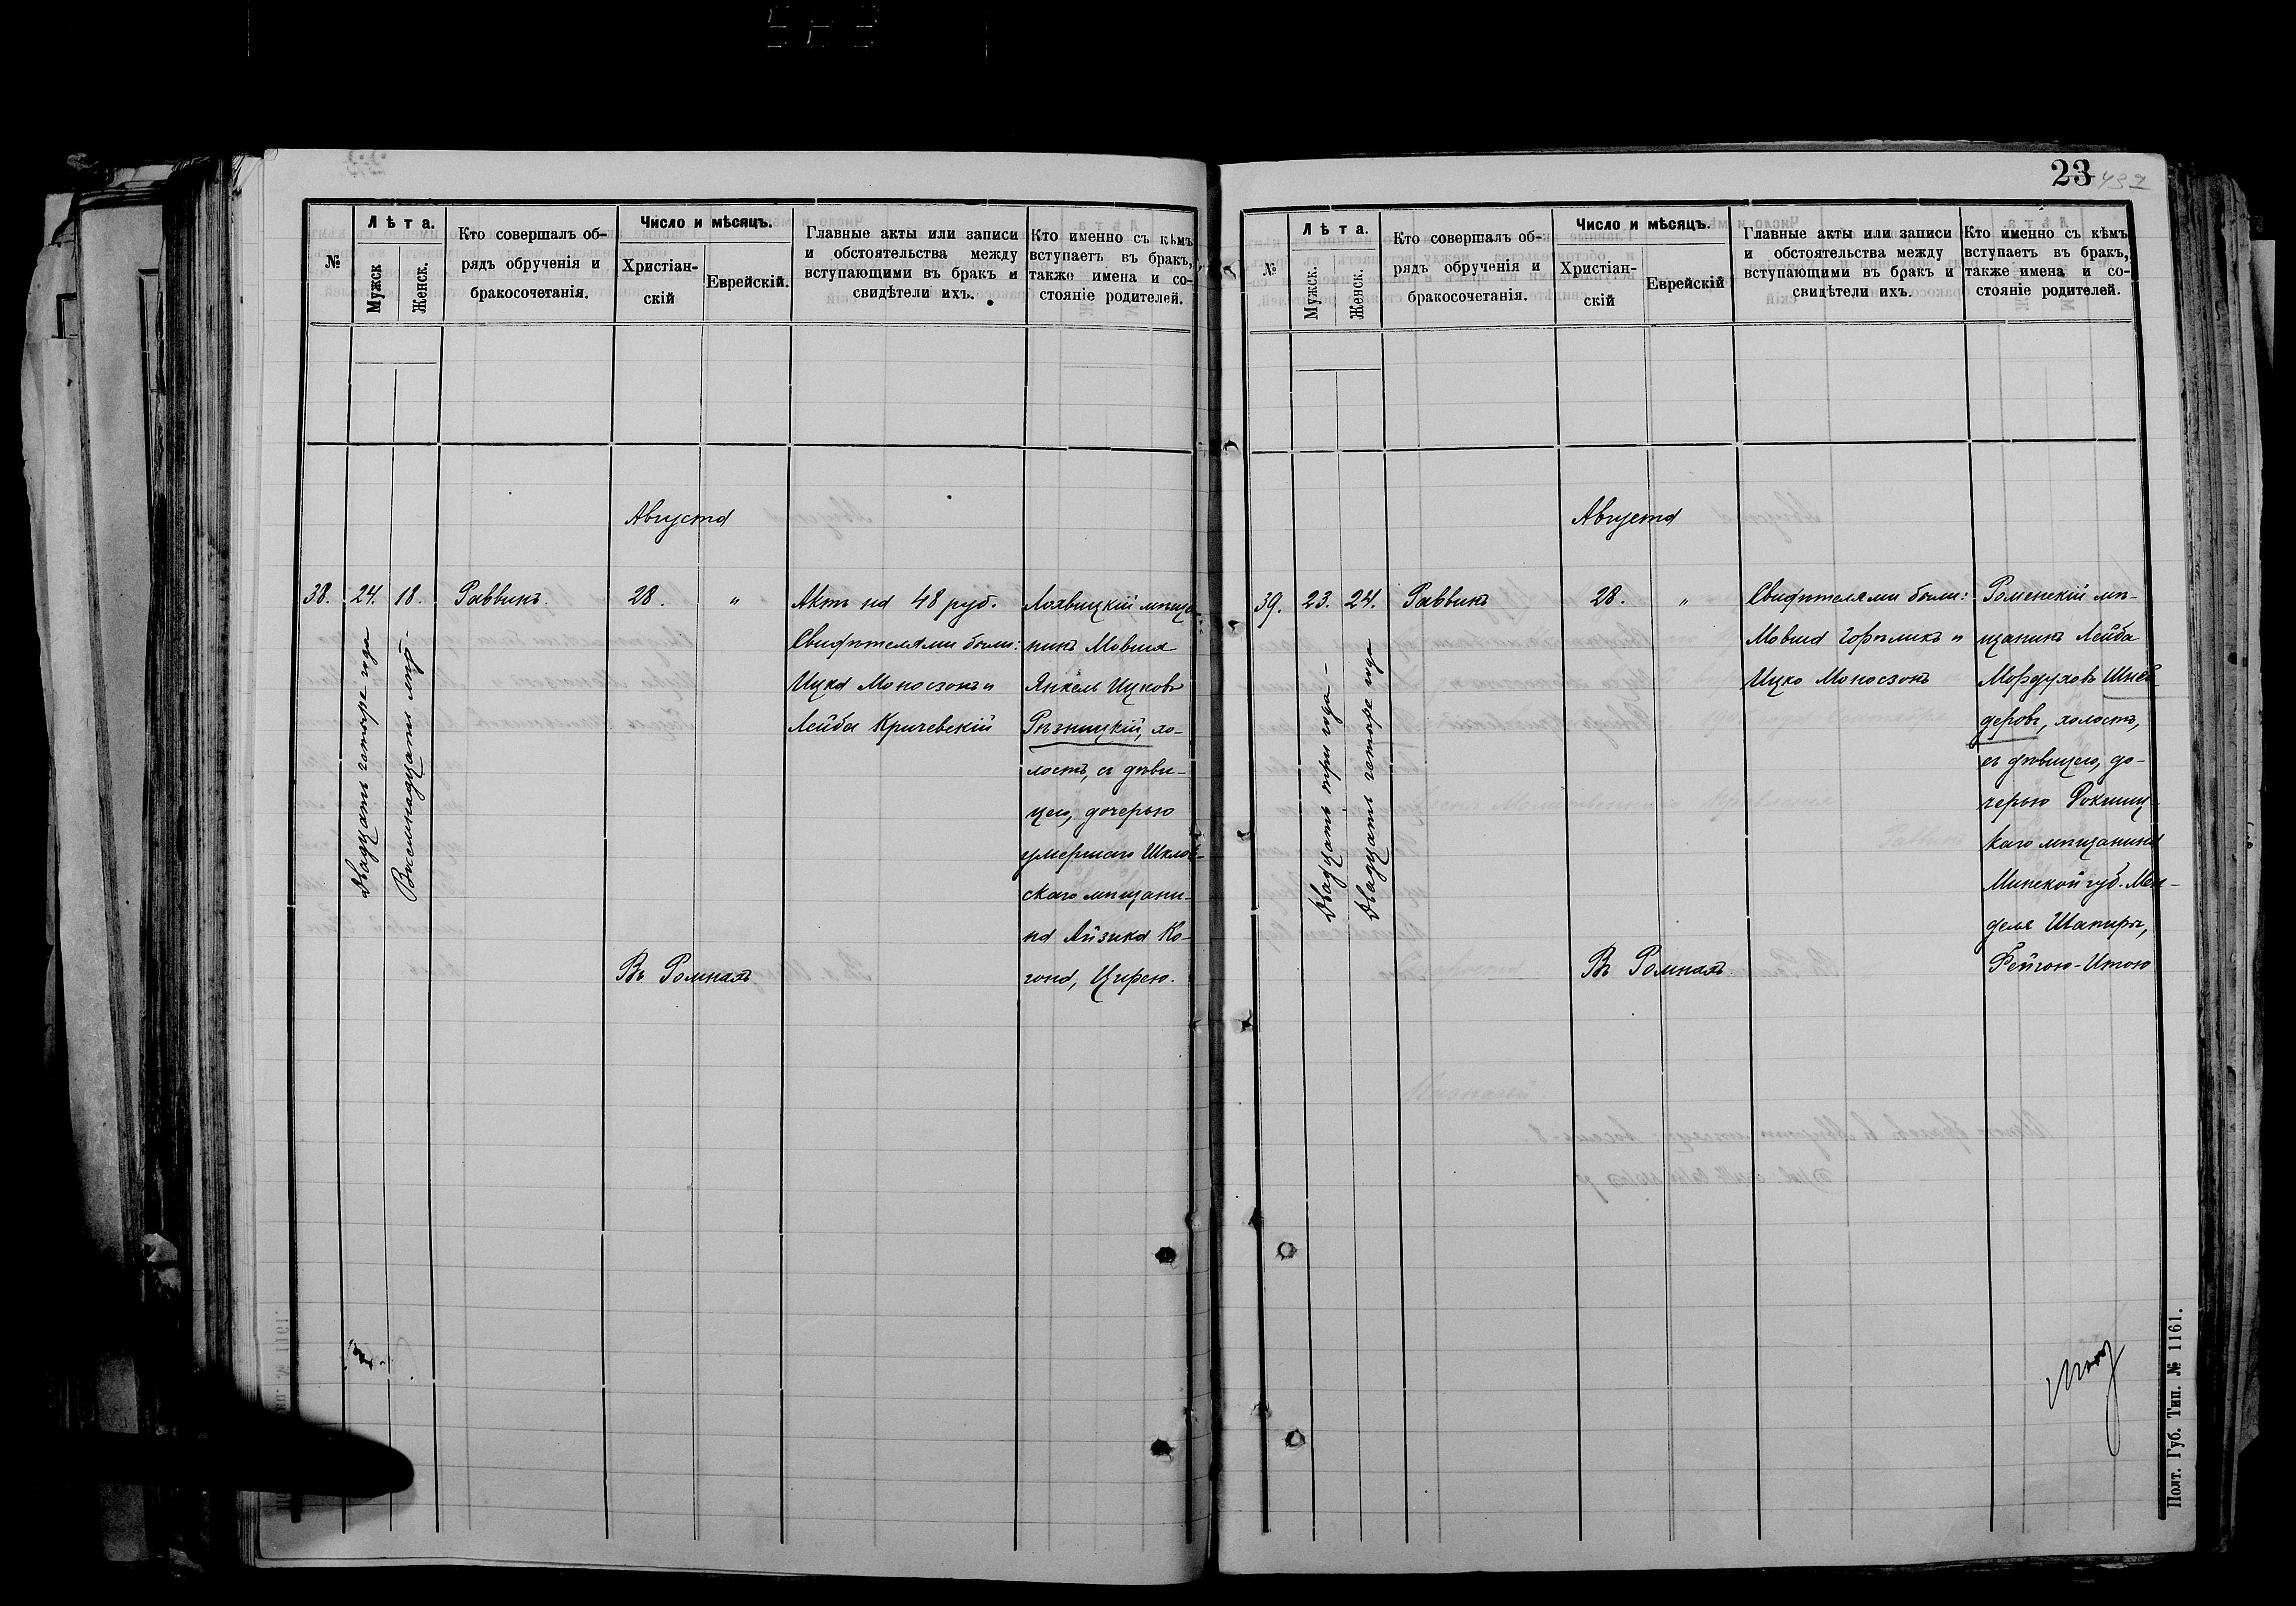 №
Лѣта.
Мужск
Женск.
Кто совершалъ об-
рядъ обрученія и
бракосочетанія.
Число и мѣсяцъ.
Христіан-
скій
Еврейскій.
Главные акты или записи
и обстоятельства между
вступающими въ бракъ и
свидѣтели ихъ.
Кто именно съ кѣмъ
вступаетъ въ бракъ,
также имена и со-
стояніе родителей.
Августа
38.
24.
Двадцать четыре года
18.
Восемнадцати лѣтъ
Раввинъ.
28.
"
Актъ на 48 руб.
Свидѣтелями были:
Ицка Моносзонъ и
Лейба Кричевскій
Лохвицкій мѣща
нинъ Мовша
Янкель Ицковъ
Рѣзницкій, хо-
лостъ, съ дѣви-
цею, дочерью
умершаго Шклов-
скаго мѣщани-
на Айзика Ко-
гона, Цирею.
Въ Ромнахъ
23
№
Лѣта.
Мужск.
Женск.
Кто совершалъ об-
рядъ обрученія и
бракосочетанія.
Число и мѣсяцъ.
Христіан-
скій
Еврейскій
Главные акты или записи
и обстоятельства между
вступающими въ бракъ и
свидѣтели ихъ.
Кто именно съ кѣмъ
вступаетъ въ бракъ,
также имена и со-
стояніе родителей.
Августа
39.
23.
Двадцать три года -
24.
Двадцать четыре года
Раввинъ
28.
"
Свидѣтелями были:
Мовша Горѣликъ и
Ицко Моносзонъ
Роменскій мѣ-
щанинъ Лейба
Мордуховъ Шней
деровъ, холостъ,
съ дѣвицею, до-
черью
каго мѣщанина
Минской губ. Мен-
деля Шапиры,
Фейгою-Итою
Въ Ромнахъ.
Полт. Губ. Тип. № 1161.